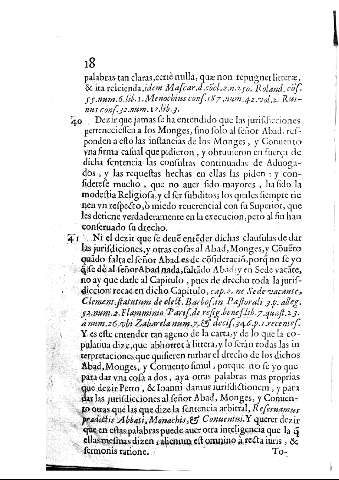 18
palabras tan claras, certè nulla, quæ non repugnet litteræ,
& ita reicienda, idem Mascar. d. cõcl. 2. n. 150. Roland. cõs.
55. num. 6. lib. 1. Menochius cons. 187. num. 42. vol. 2.
nus cons. 32. num. 12. lib. 3.
40 Dezir que jamas se ha entendido que las jurisdicciones
perteneciessen a los Monges, sino solo al señor Abad, res-
ponden a esto las instancias de los Monges, y Conuento
vna firma casual que pidieron, y obtuuieron en fuerça de
dicha sentencia las consultas continuadas de Aduoga-
dos, y las requestas hechas en ellas las piden: y con-
siderese mucho, que no auer sido mayores, ha sido la
modestia Religiosa, y el ser subditos los quales siempre tie
nen vn respecto, ò miedo reuerencial con su Superior, que
les detiene verdaderamente en la execucion, pero al fin han
conseruado su drecho.
41 Ni el dezir que se deuẽ entẽder dichas clausulas de dar
las jurisdicciones, y otras cosas al Abad, Monges, y Cõuẽto
quãdo falta el señor Abad es de cõsideraciõ, porq̃ no se yo
q̃ se dè al señor Abad nada, faltãdo Abad, y en Sede vacãte,
no ay que darle al Capitulo, pues de drecho toda la jurisd-
diccion recae en dicho Capitulo, cap. 2. ne Sede vacante,
Clement. statutum de elect. Barbos. in Pastorali 3. p. alleg.
52. num. 2. Flamminio Paris. de resig. benef. lib. 7. quæst. 23.
à num. 26. vbi Zabarela num. 7. & decis. 346. p. 1. recentis.
Y es este entender tan ageno de la carta, y de lo que la co-
pulatiua dize, que abhorret à littera, y lo serãn todas las in
terpretaciones, que quisieren turbar el drecho de los dichos
Abad, Monges, y Conuento simul, porque no se yo que
para dar vna cosa a dos, aya otras palabras mas proprias
que dezir Petro, & Ioanni damus jurisdictionem, y para
dar las jurisdicciones al señor Abad, Monges, y Conuen-
to otras que las que dize la sentencia arbitral, Reseruamus
prædictis Abbati, Monachis, & Conuentui. Y querer dezir
que en estas palabras puede auer otra inteligencia que la q̃
ellas mesmas dizen, alienum est omninò à recta iuris, &
sermonis ratione. To-